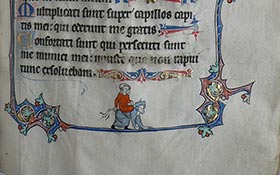 Multiplicati sunt super capillos capi
tis mei: qui oderunt me gratis.
Confortati sunt qui persecuti sunt
me inimici mei iniuste que non rapui
tunc exsolvebam.